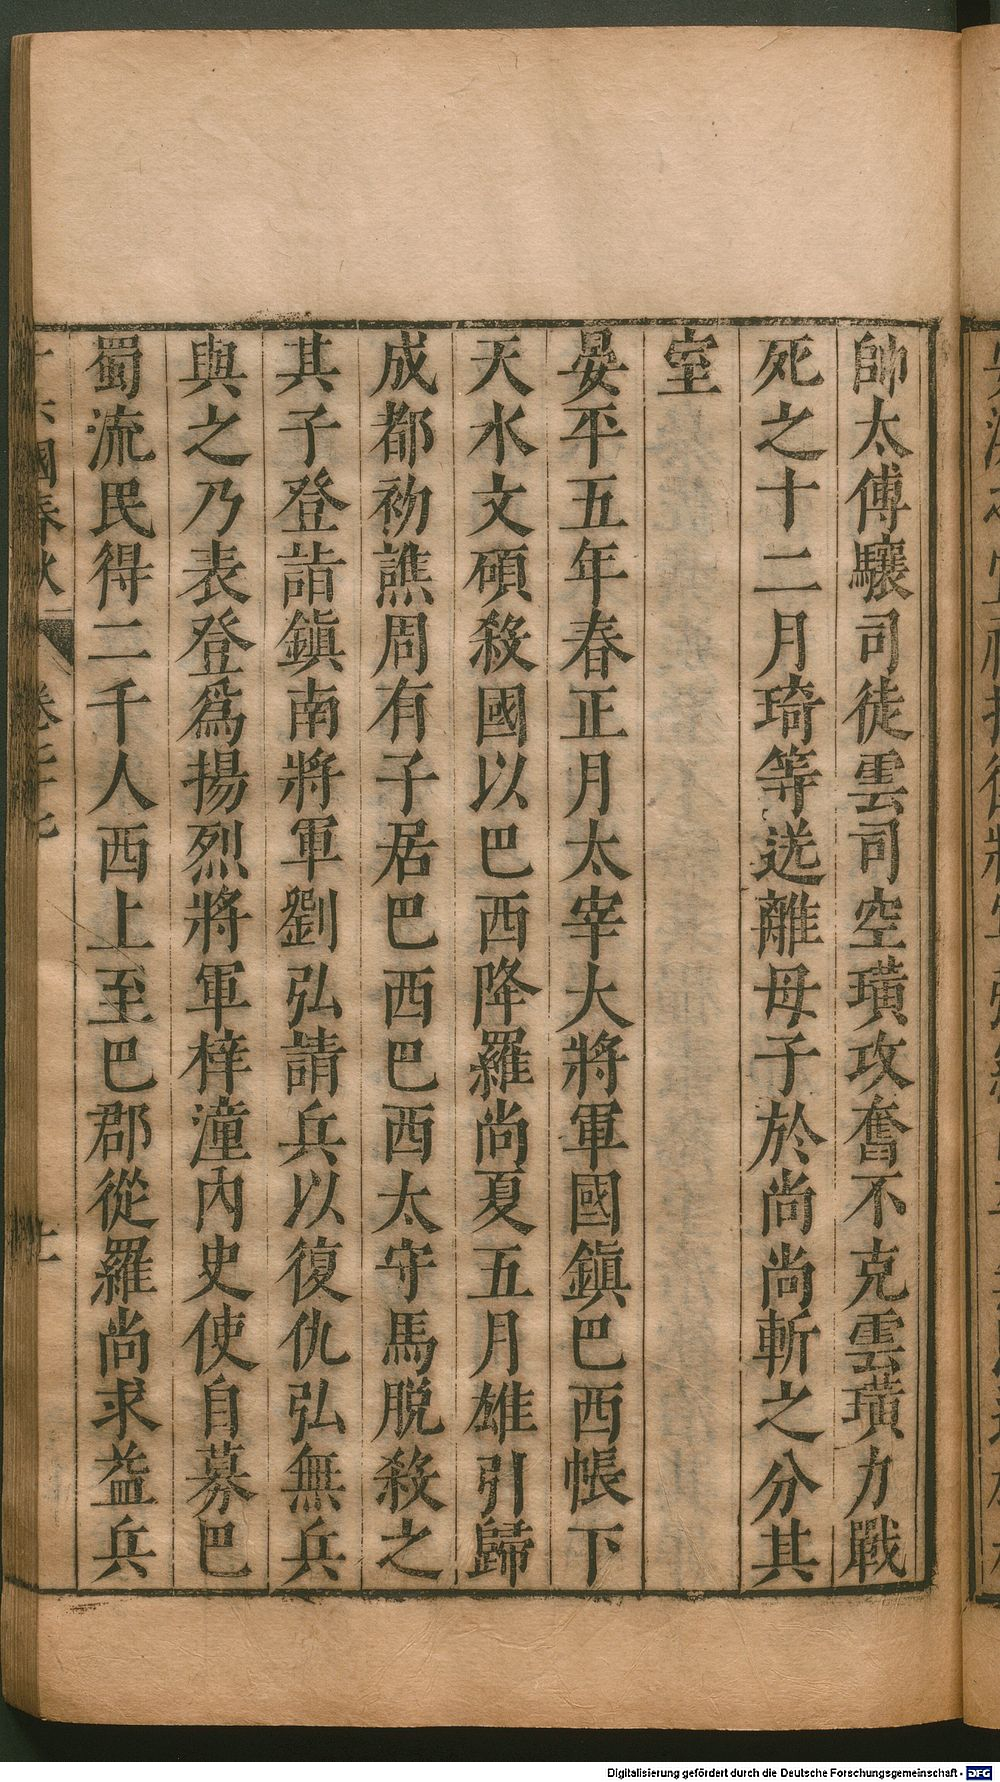 帥太傅驤司徒雲司空璜攻奮不克雲璜力戰
死之十二月琦等送離母子於尚尚斬之分其
室
晏平五年春正月太宰大將軍國鎮巴西帳下
天水文碩殺國以巴西降羅尚夏五月雄引歸
成都初譙周有子居巴西巴西太守馬脫殺之
其子登詣鎮南將軍劉弘請兵以復仇弘無兵
與之乃表登爲揚烈將軍梓潼內史使自募巴
蜀流民得二千人西上至巴郡從羅尚求益兵
國春秋
Digitalisierung gefördert durch die Deutsche Forschungsgemeinschaft - DFG